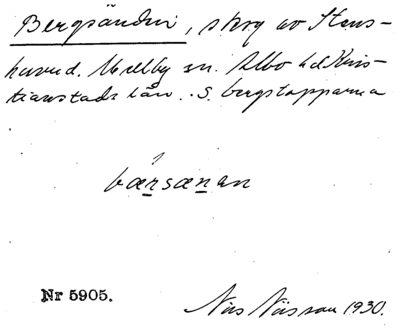 Bergsänden, skog av Stens-
huvud. Mellby sn. Albo hd Kris-
tianstads län. S. bergstopparna
bærsænan
Nr 5905.
Nils Nilsson 1930.